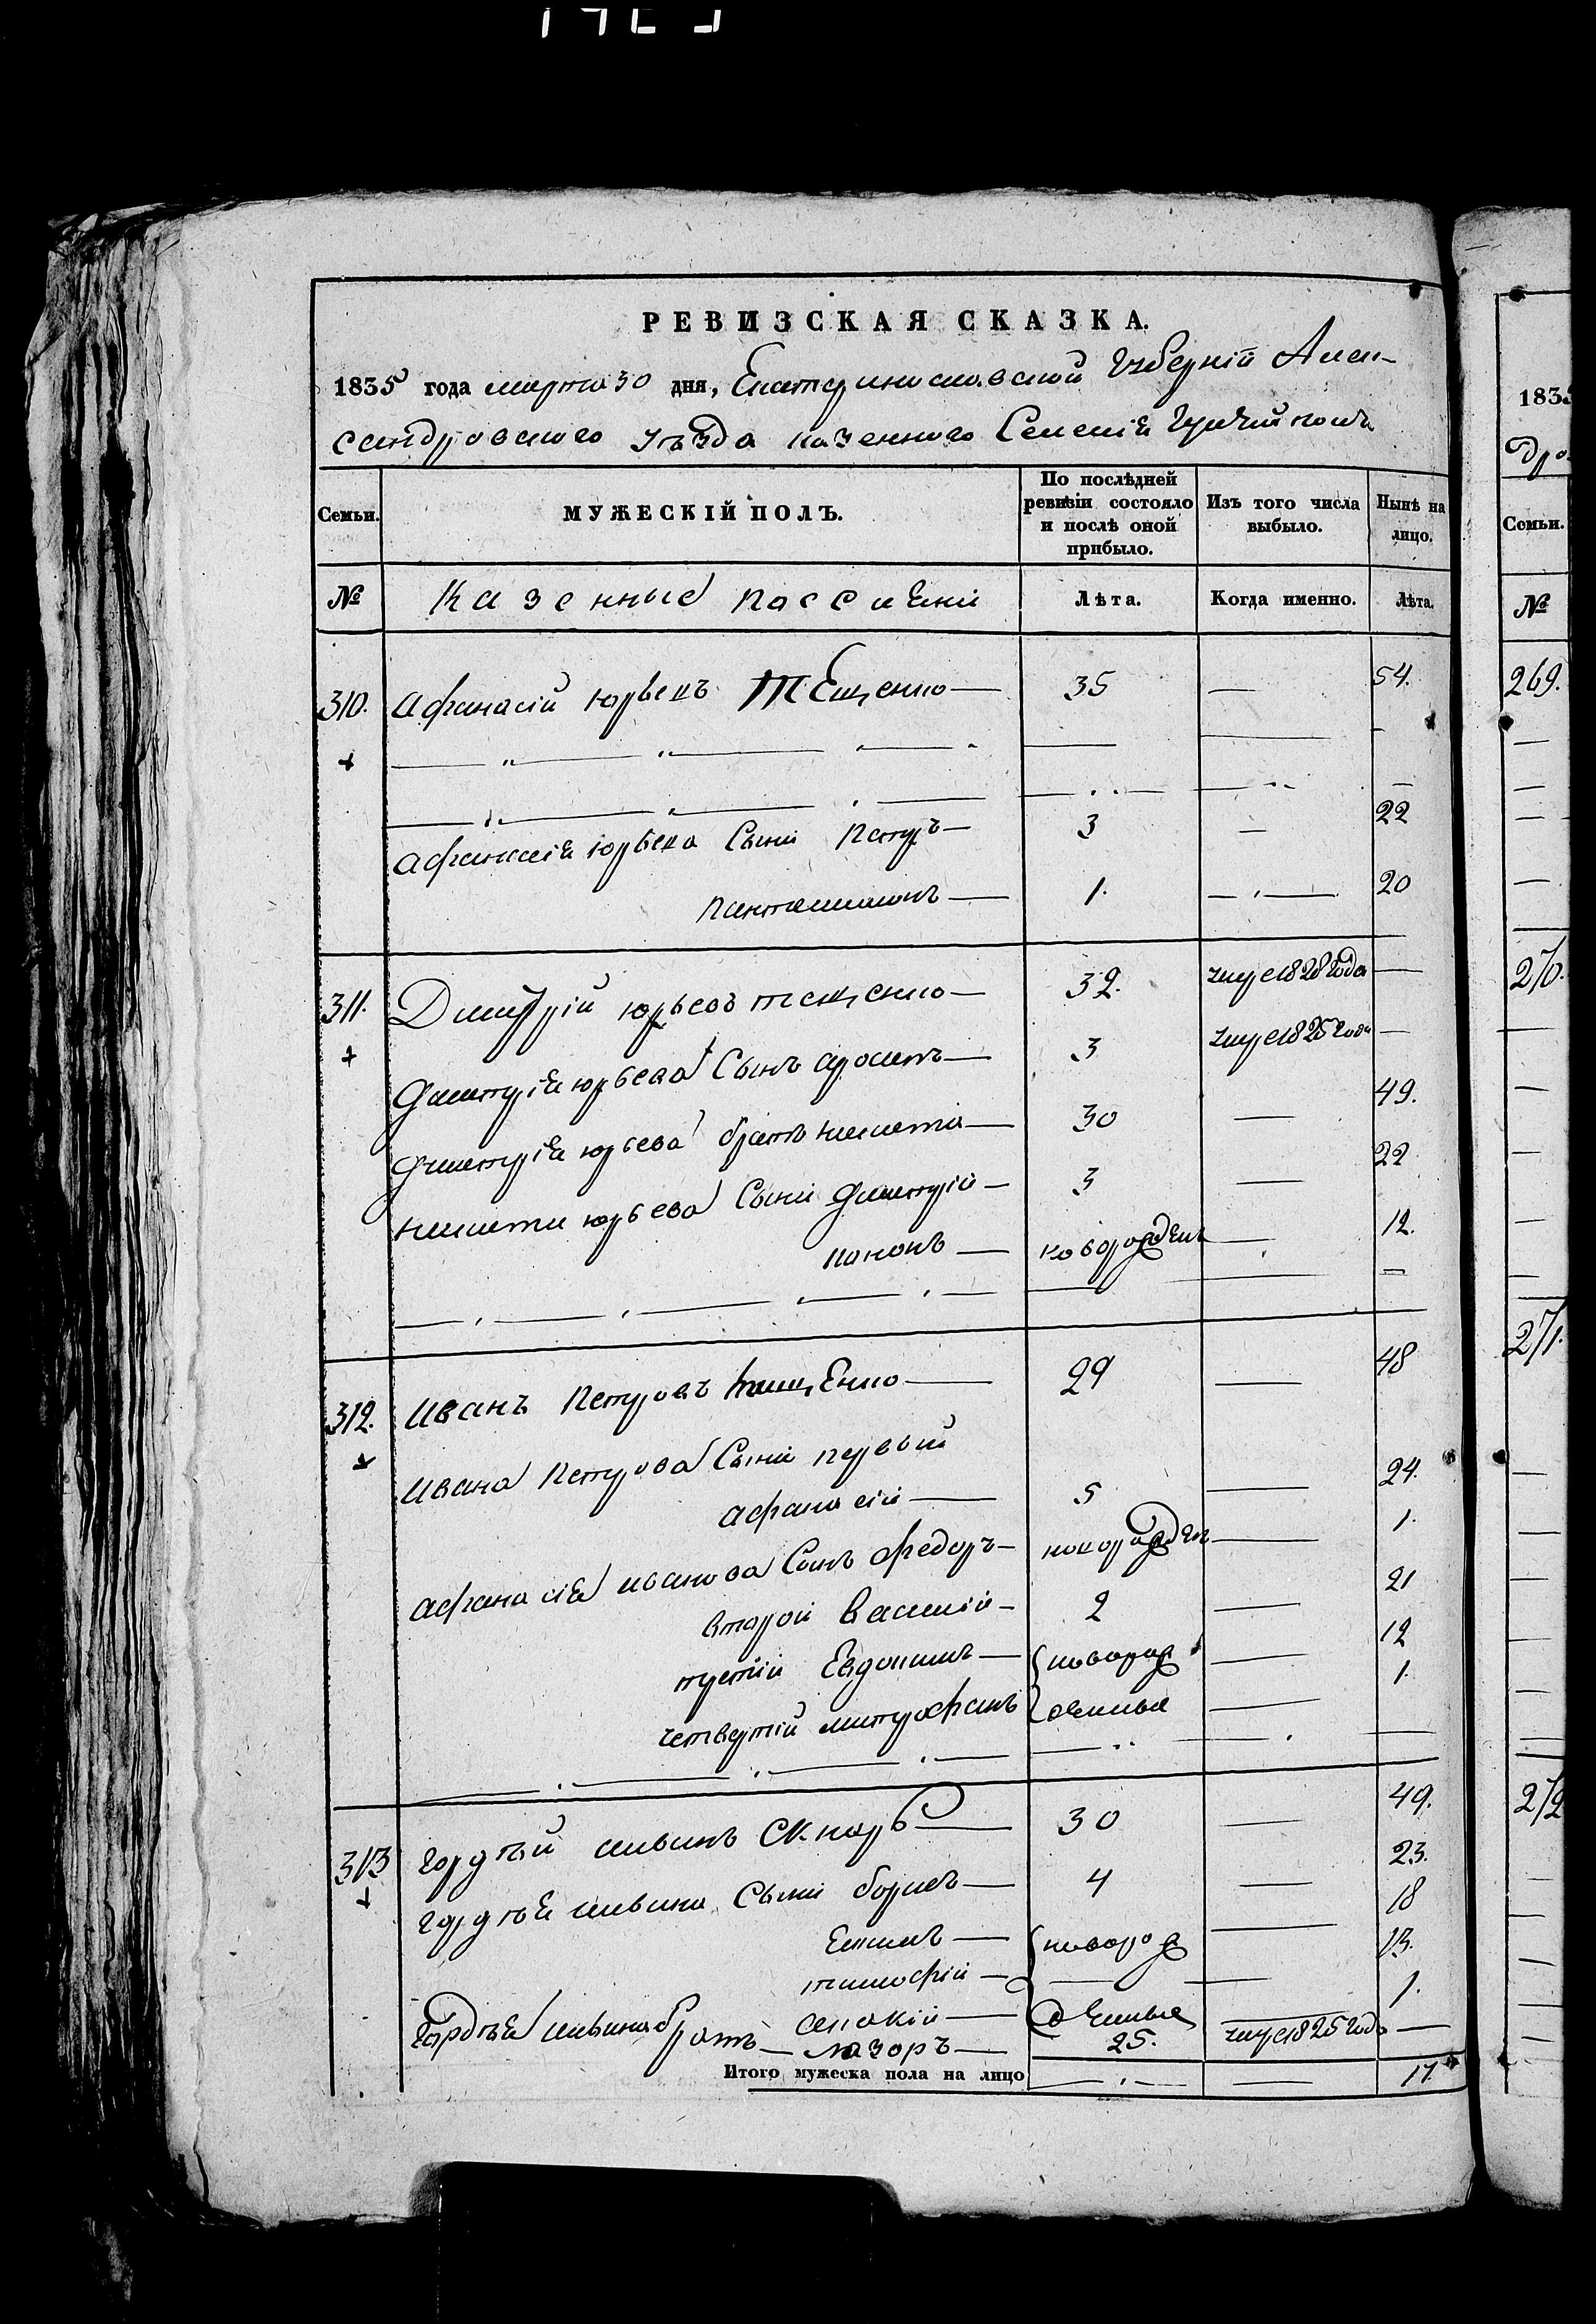 РЕВИЗСКАЯ СКАЗКА.
1835 года марта 30 дня, Екатеринославской Губерніи Алек-
сандровского уѣзда казенного Селенія
Семьи. МУЖЕСКІЙ ПОЛЪ. По послѣдней ревизіи состояло и послѣ оной прибыло. Изъ того числа выбыло. Нынѣ на лицо.
№ Казенные поселяни Лѣта. Когда именно. Лѣта.
310. Афанасій юрьевъ Тещенко 35 — 54.
Афанасія юрьева Сыни Петръ 3 — 22
Пантелимонъ 1. — 20
311. Дмитрій юрьевъ тещенко 32. умре 1828 года —
Дмитрія юрьева Сынъ 3 умре 1825 года —
Дмитрія юрьева братъ никита 30 — 49.
никити юрьева Сыни Дмитрій 3 — 22
кононъ новорожденъ — 12.
312. Иванъ Петровъ тищенко 29 — 48
Ивана Петрова Сыни первый
Афанасій 5 — 24.
Афанасія иванова Сынъ Федоръ новорожден — 1.
второй Василій 2 — 21
третій Евдокимъ новорож — 12
четвертій митрофанъ денные — 1.
313 гордѣй Скнарь 30 — 49.
гордѣя Сыни борисъ 4 — 23.
Екимъ новорож — 18
тимофій — 13.
денные — 1.
Гордѣя братъ лазоръ 25. умре 1825 года —
Итого мужеска пола на лицо — — 17
1835
Семьи.
№
269.
270.
271.
272